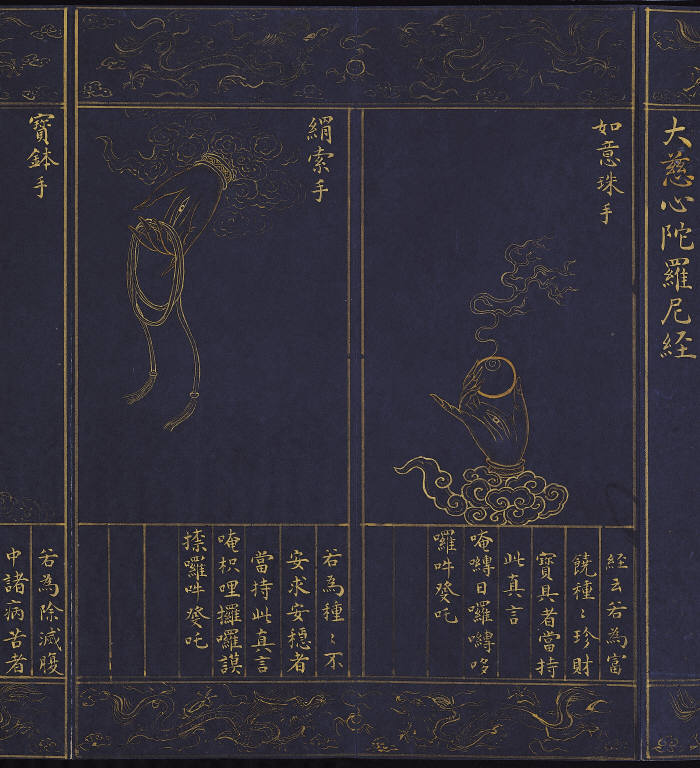 大慈心陀羅尼経
如意珠手
経云若為富
饒種〻珍財
寶具者當持
此真言
唵嚩日囉嚩哆
囉吽癹吒
羂索手
若為種〻不
安求安穩者
當持此真言
唵枳哩攞囉謨
捺囉吽癹吒
寶鉢手
若為除滅腹
中諸病苦者